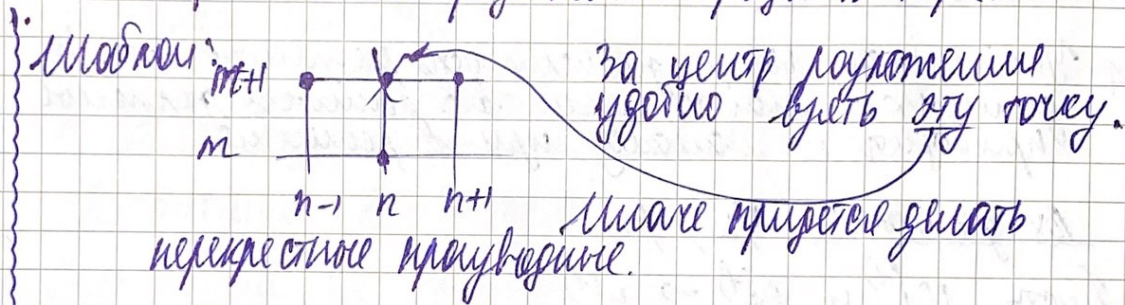 Шаблон:
m+1
За центр разложения
удобно взять эту точку.
m
n-1 n n+1
Иначе придется делать
перекрестные производные.